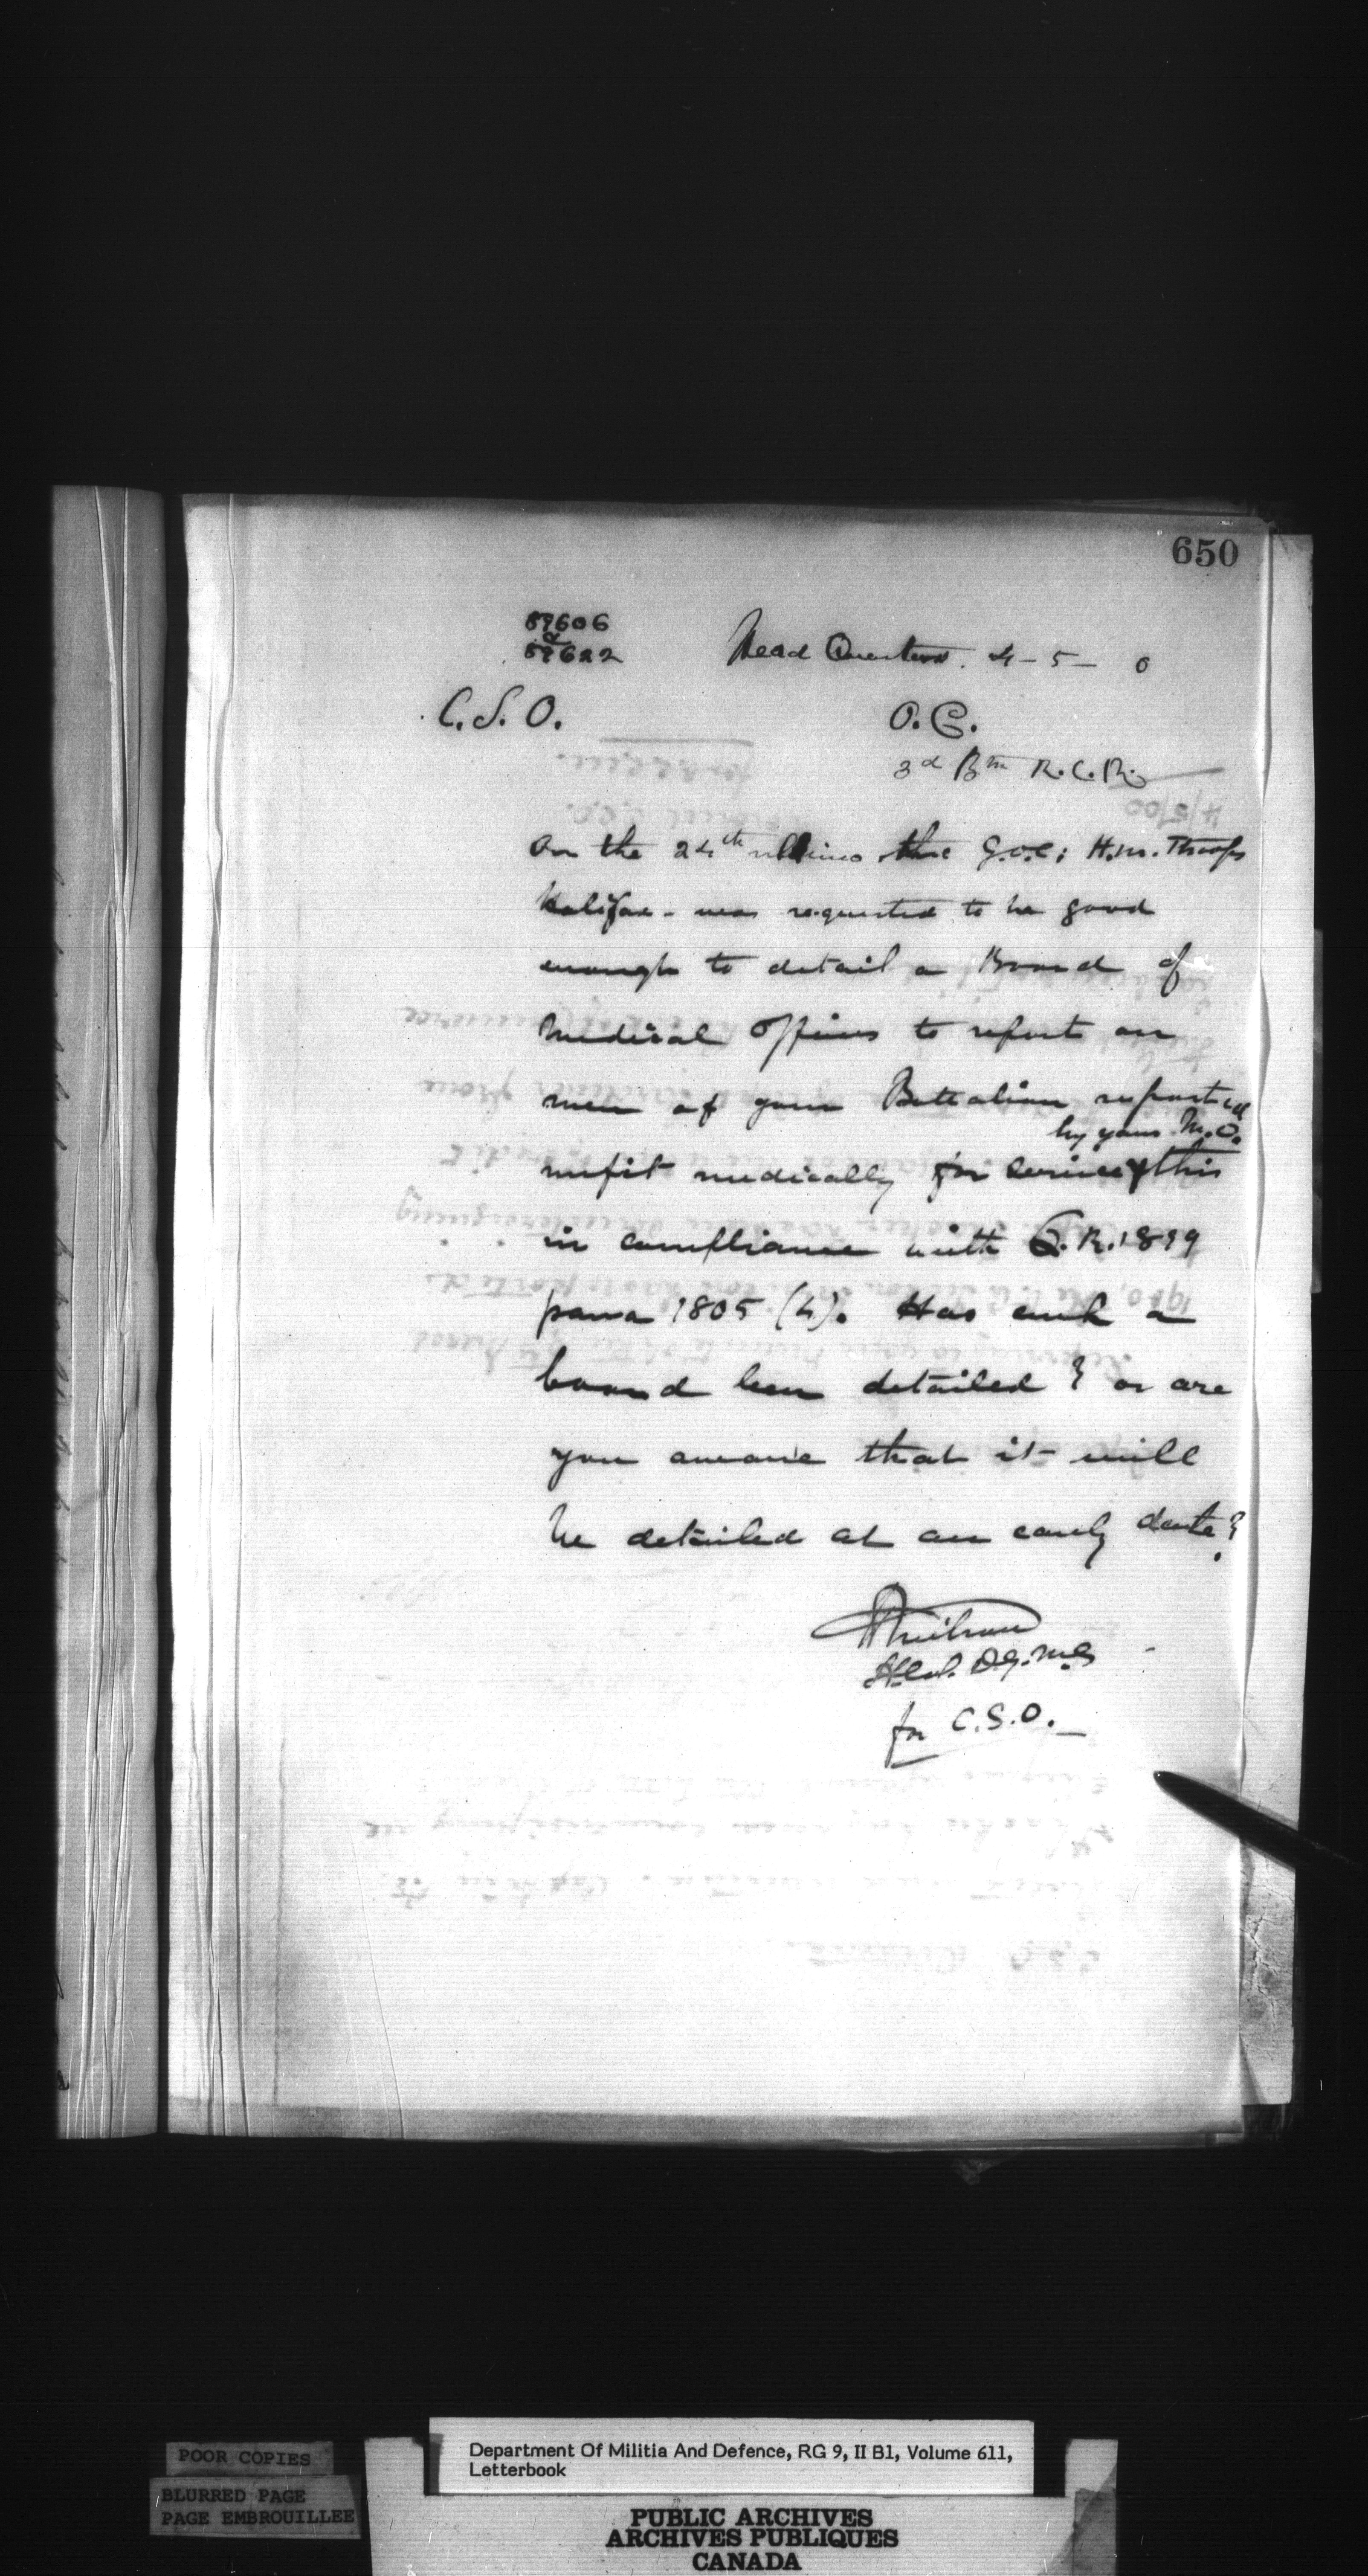 650
89606
&
89622
Head Quarters. 4-5- 0
C.S.O.
O.C.
3d Bn R.C.R.
4/5/00
On the 24th ultimo the G.O.C; H.M. Troops
Halifax - was requested to be good
enough to detail a Board of
Medical Officers to report on
men of your Battalion reported
by your M.O.
unfit medically for service, this
in compliance with Q.R. 1899
para 1805 (4). Has such a
board been detailed? or are
you aware that it will
be detailed at an early date?
Lt. Col. D.G.M.S
for C.S.O.
POOR COPIES
BLURRED PAGE
PAGE EMBROUILLEE
Department Of Militia And Defence, RG 9, II B1, Volume 611,
Letterbook
PUBLIC ARCHIVES
ARCHIVES PUBLIQUES
CANADA